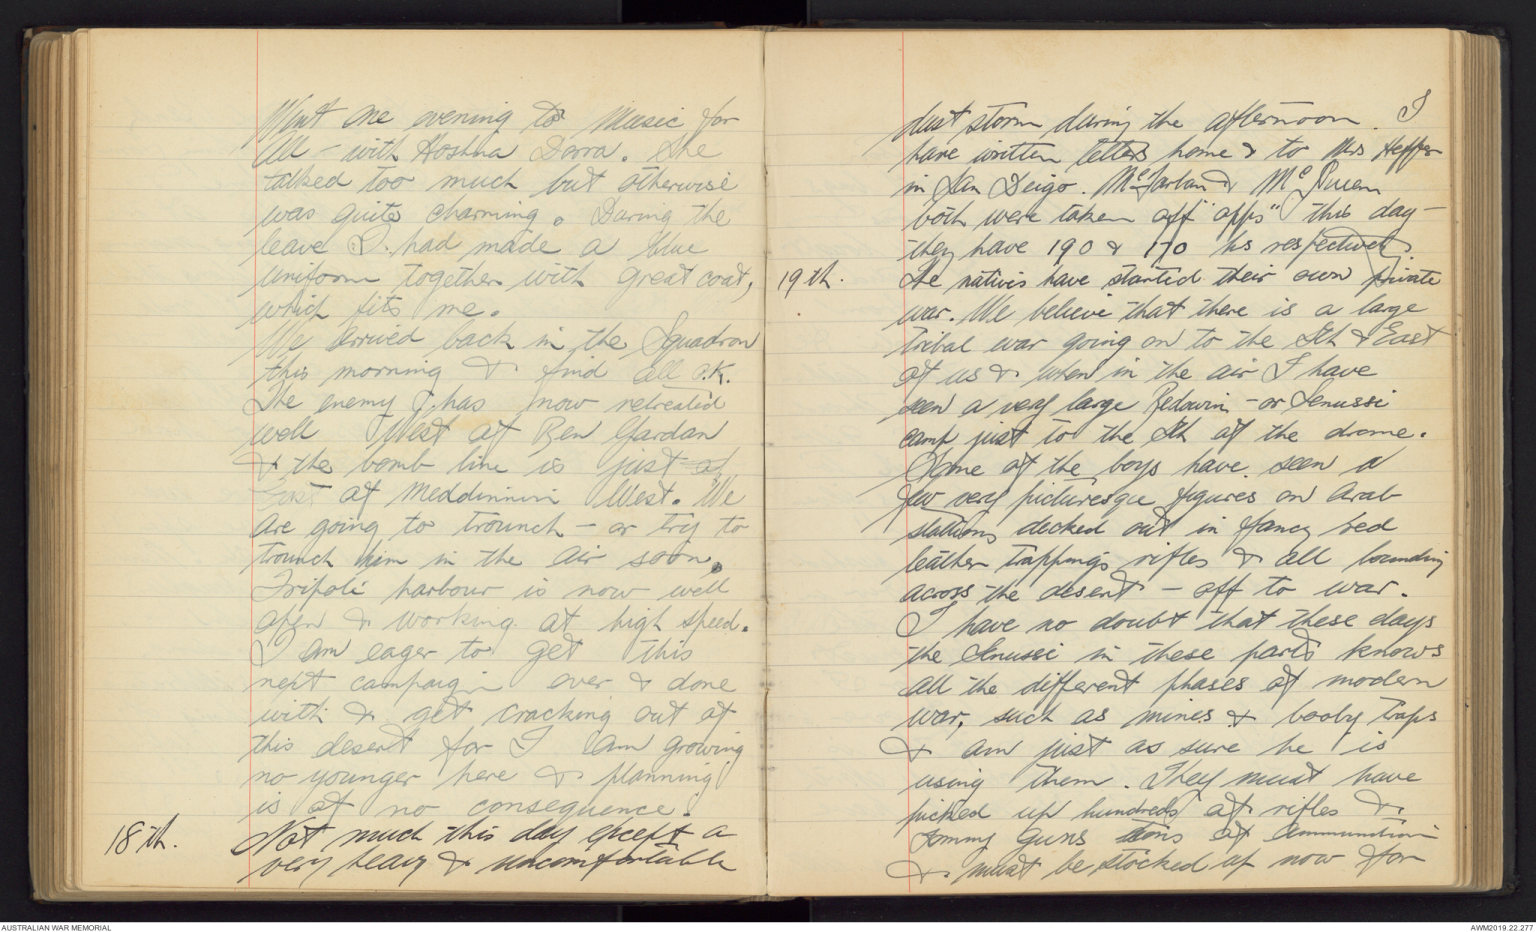 Went one evening to Music for
All - with Hoshna Dorra. She
talked too much but otherwise
was quite charming. During the
leave I had made a blue
uniform together with great coat,
which fits me.
We arrived back in the Squadron
this morning & find all O.K.
The enemy has now retreated
well West of Ben Gardan
& the bomb line is just of
East of Meddinnin West. We
are going to trounch - or try to
trounch him in the air soon.
Tripoli harbour is now well
open & working at high speed.
I am eager to get this
next campaign over & done
with & get cracking out of
this desert for I am growing
no younger here & planning
is of no consequence.
18th. Not much this day except a
very heavy & uncomfortable
dust storm during the afternoon. I
have written letters home & to Mrs Heffer
in San Deigo. McFarlan & McQueen
both were taken off "opps" this day -
they have 190 & 170 hs respectively.
19th. The natives have started their own private
war. We believe that there is a large
tribal war going on to the Sth & East
of us & when in the air I have
seen a very large Bedowin - or Senussi
camp just to the Sth of the drome.
Some of the boys have seen a
few very picturesque figures on Arab
stallions decked out in fancy red
leather trappings rifles & all bounding
across the desert - off to war.
I have no doubt that these days
the Senussi in these parts knows
all the different phases of modern
war, such as mines & booby traps
& am just as sure he is
using them. They must have
picked up hundreds of rifles &
Tommy guns tons of ammunition
& must be stocked up now for
AUSTRALIAN WAR MEMORIAL
AWM2019.22.277